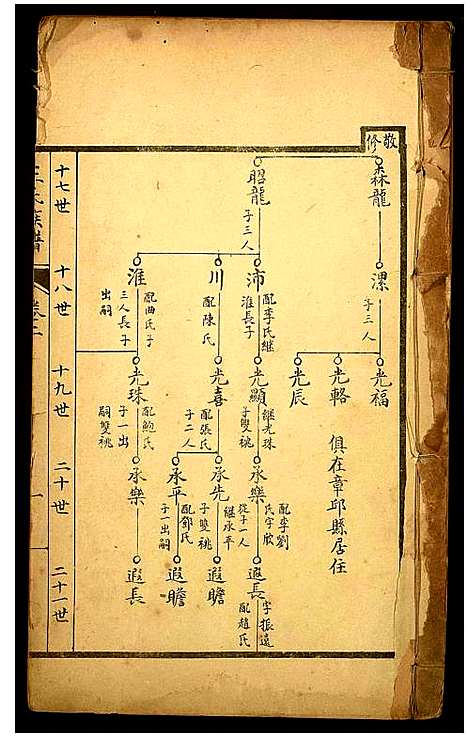 敬修
森龍
漯
子三人
光福
光輅
光辰
俱在章邱縣居住
昭龍
子三人
沛
配李氏繼
淮長子
光顯
繼光珠
子雙祧
承樂
配李劉
氏字欣
從子一人
遐長
字振遠
配趙氏
川
配陳氏
光喜
配張氏
子二人
承先
繼承平
子雙祧
遐瞻
承平
配鄧氏
子出嗣
遐瞻
淮
配曲氏子
三人長子
出嗣
光珠
配鮑氏
子一出
嗣雙祧
承樂
遐長
十七世
十八世
十九世
二十世
二十一世
王氏族譜
卷二
一